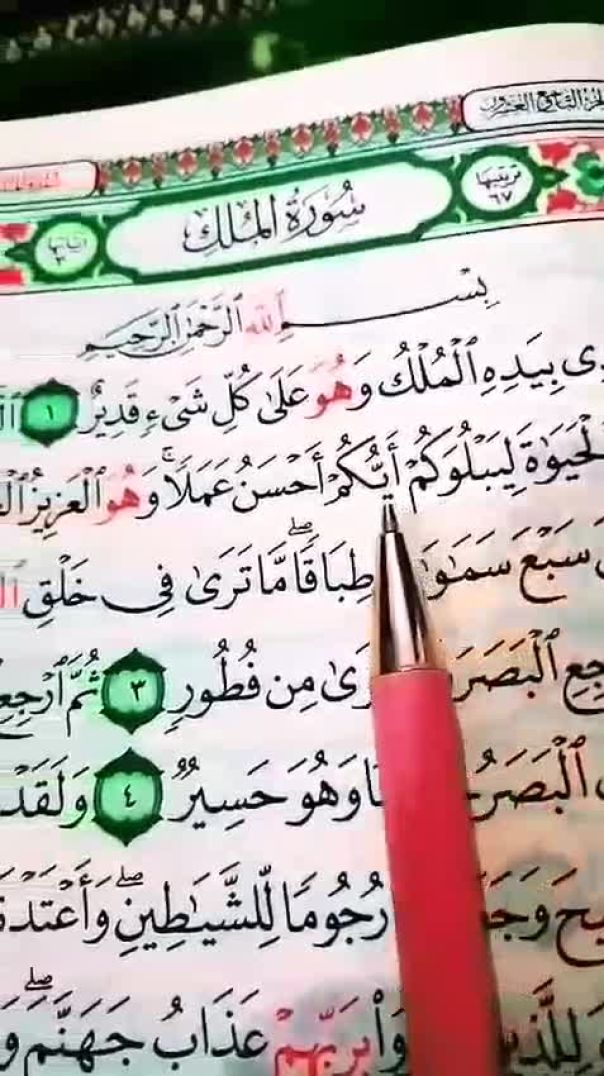 الجزء التاسع والعشرون
سُورَةُ المُلكِ
ترتيبها ٦٧
آياتها
بِسْمِ ٱللَّهِ ٱلرَّحْمَٰنِ ٱلرَّحِيمِ
بِيَدِهِ ٱلْمُلْكُ وَهُوَ عَلَىٰ كُلِّ شَىْءٍ قَدِيرٌ ١
ٱلْحَيَوٰةَ لِيَبْلُوَكُمْ أَيُّكُمْ أَحْسَنُ عَمَلًا ۚ وَهُوَ ٱلْعَزِيزُ
سَبْعَ سَمَٰوَ طِبَاقًا ۖ مَّا تَرَىٰ فِى خَلْقِ
جِعِ ٱلْبَصَرَ رَىٰ مِن فُطُورٍ ٣ ثُمَّ ٱرْجِعِ
ٱلْبَصَرُ ا وَهُوَ حَسِيرٌ ٤ وَلَقَدْ
يحَ وَجَ رُجُومًا لِّلشَّيَٰطِينِ ۖ وَأَعْتَدْ
وَلِلَّذِي وا۟ بِرَبِّهِمْ عَذَابُ جَهَنَّمَ ۖ وَ